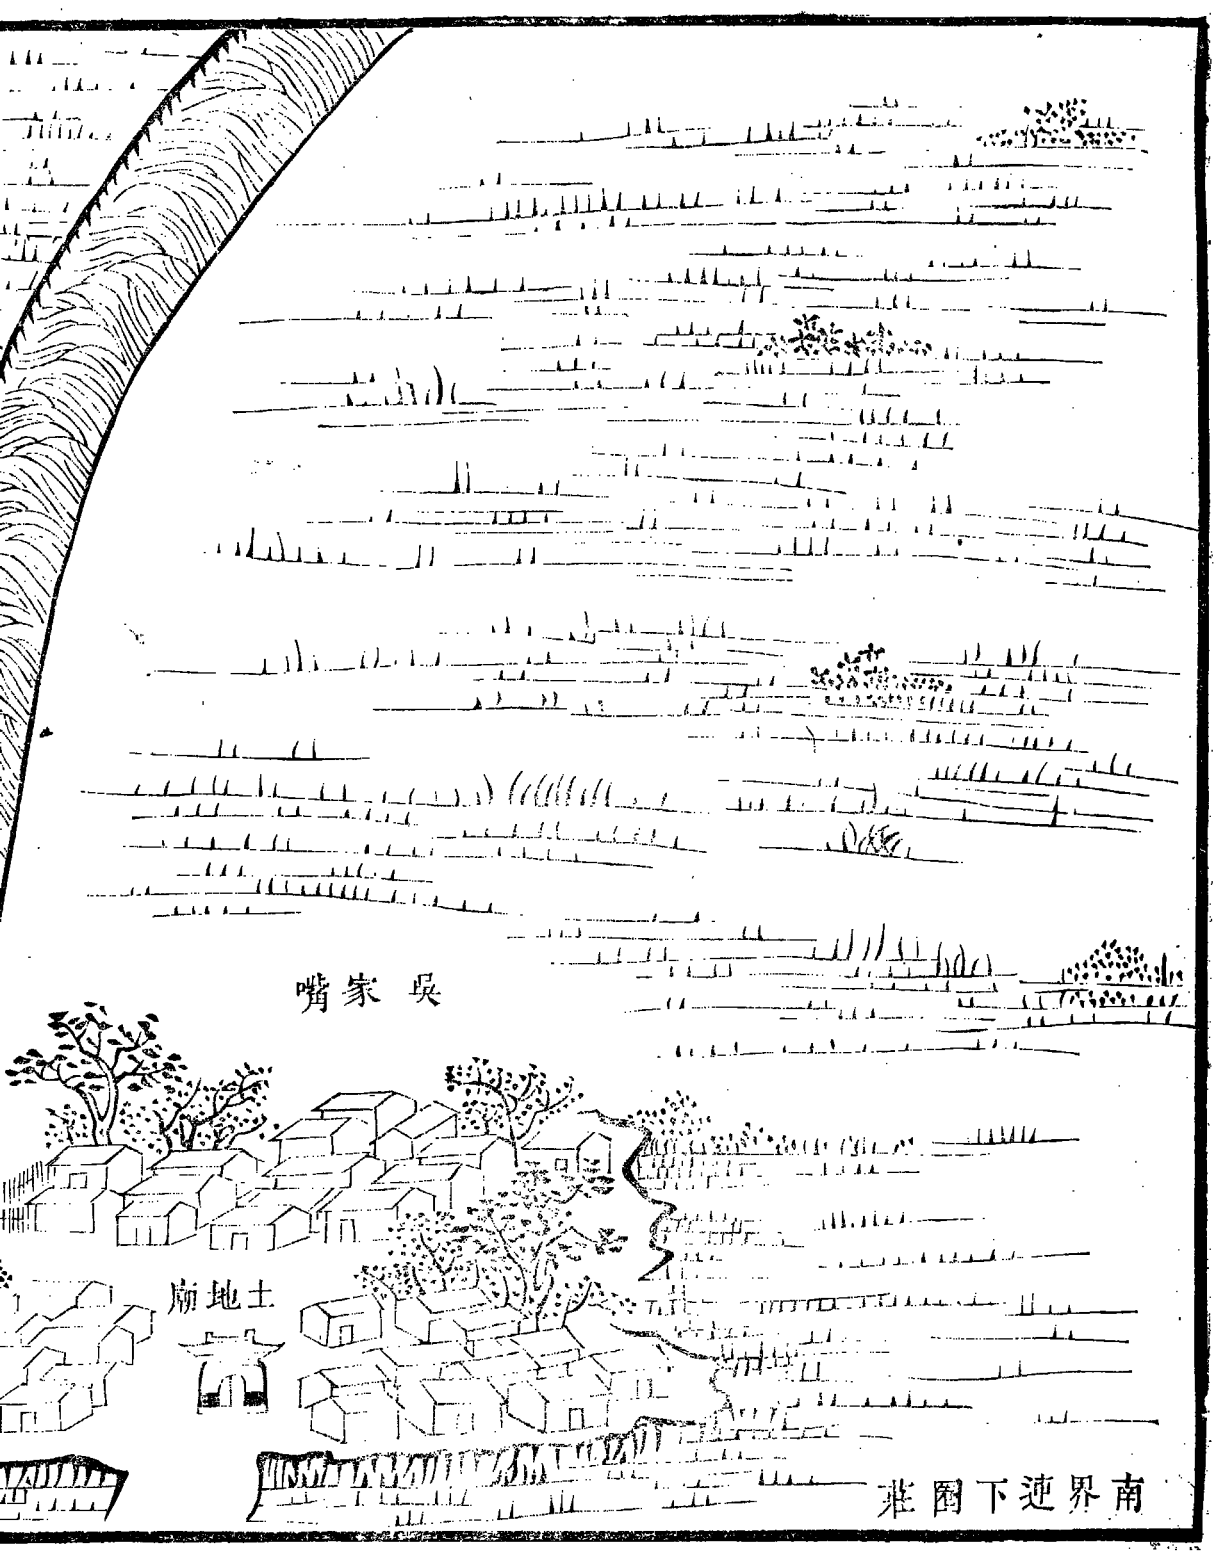 吳家嘴
土地廟
南界連下圈莊